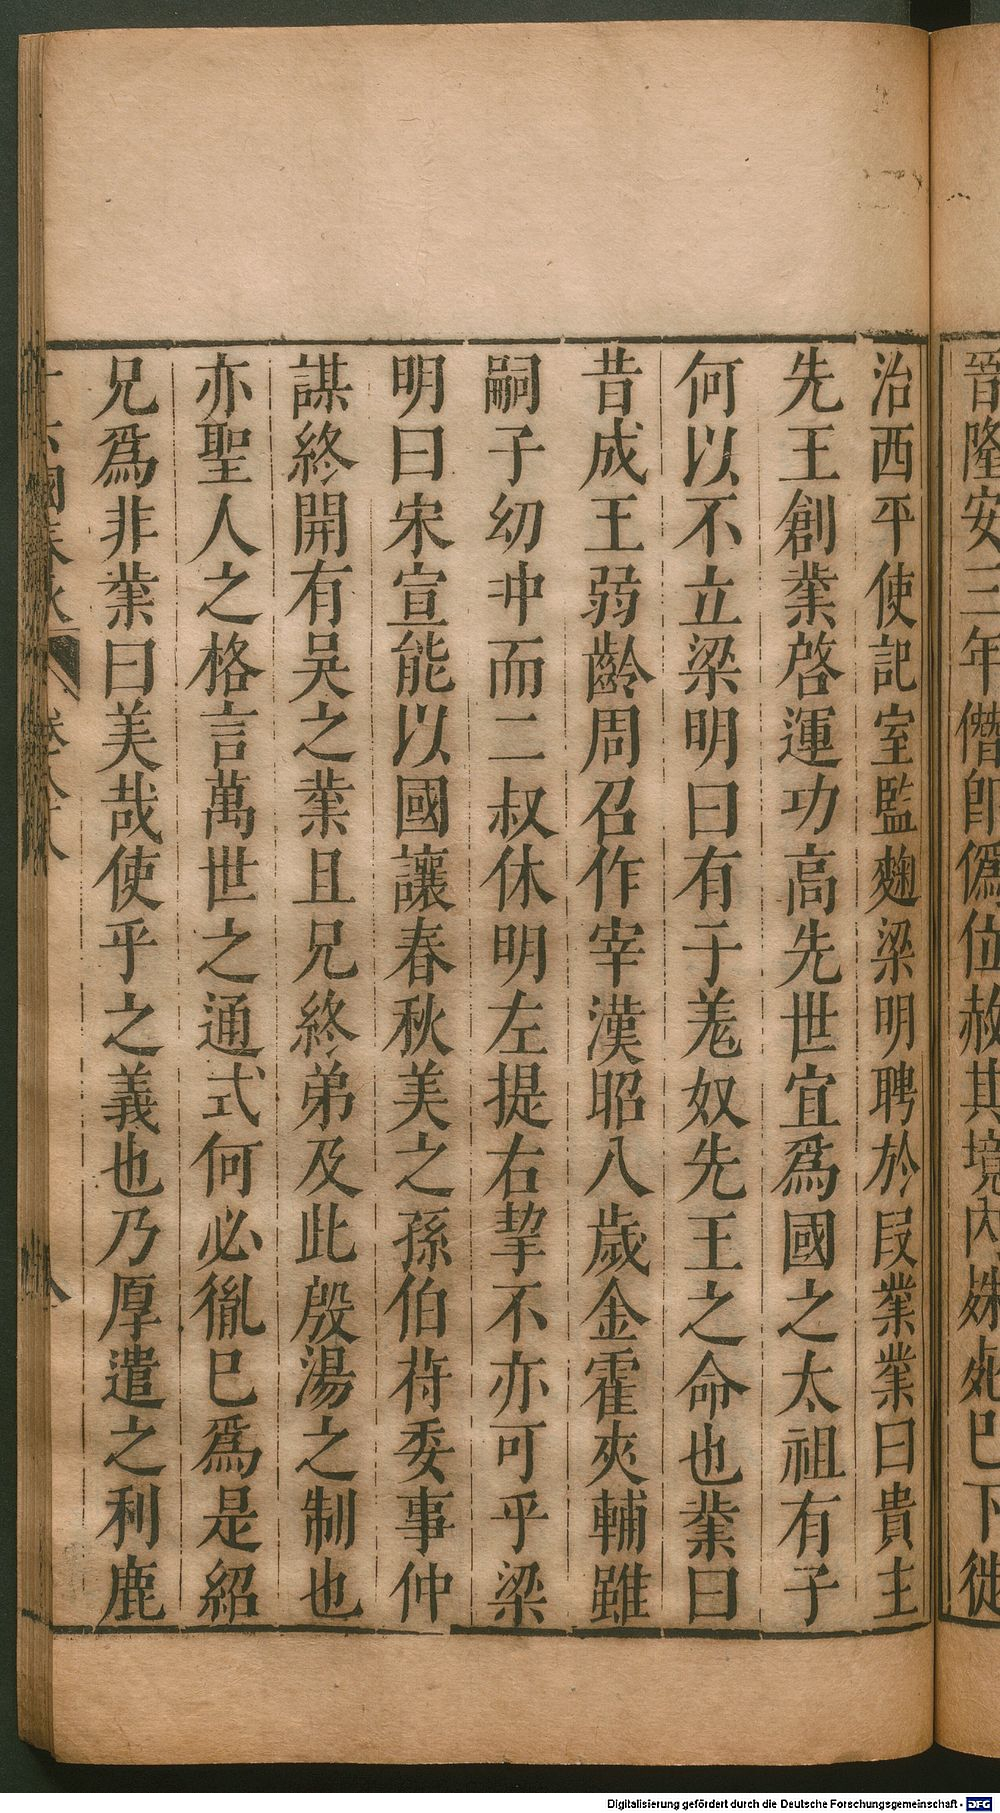 晉隆安三年僭即僞位赦其境内殊死已下徙
治西平使記室監麴梁明聘於段業業曰貴主
先王創業啓運功高先世宜爲國之太祖有子
何以不立梁明曰有子羗奴先王之命也業曰
昔成王弱齡周召作宰漢昭八歲金霍夾輔雖
嗣子幼冲而二叔休明左提右挈不亦可乎梁
明曰宋宣能以國讓春秋美之孫伯符委事仲
謀終開有吴之業且兄終弟及此殷湯之制也
亦聖人之格言萬世之通式何必胤巳爲是紹
兄爲非業曰美哉使乎之義也乃厚遣之利鹿
十六國春秋 卷八十八 八
Digitalisierung gefördert durch die Deutsche Forschungsgemeinschaft - DFG